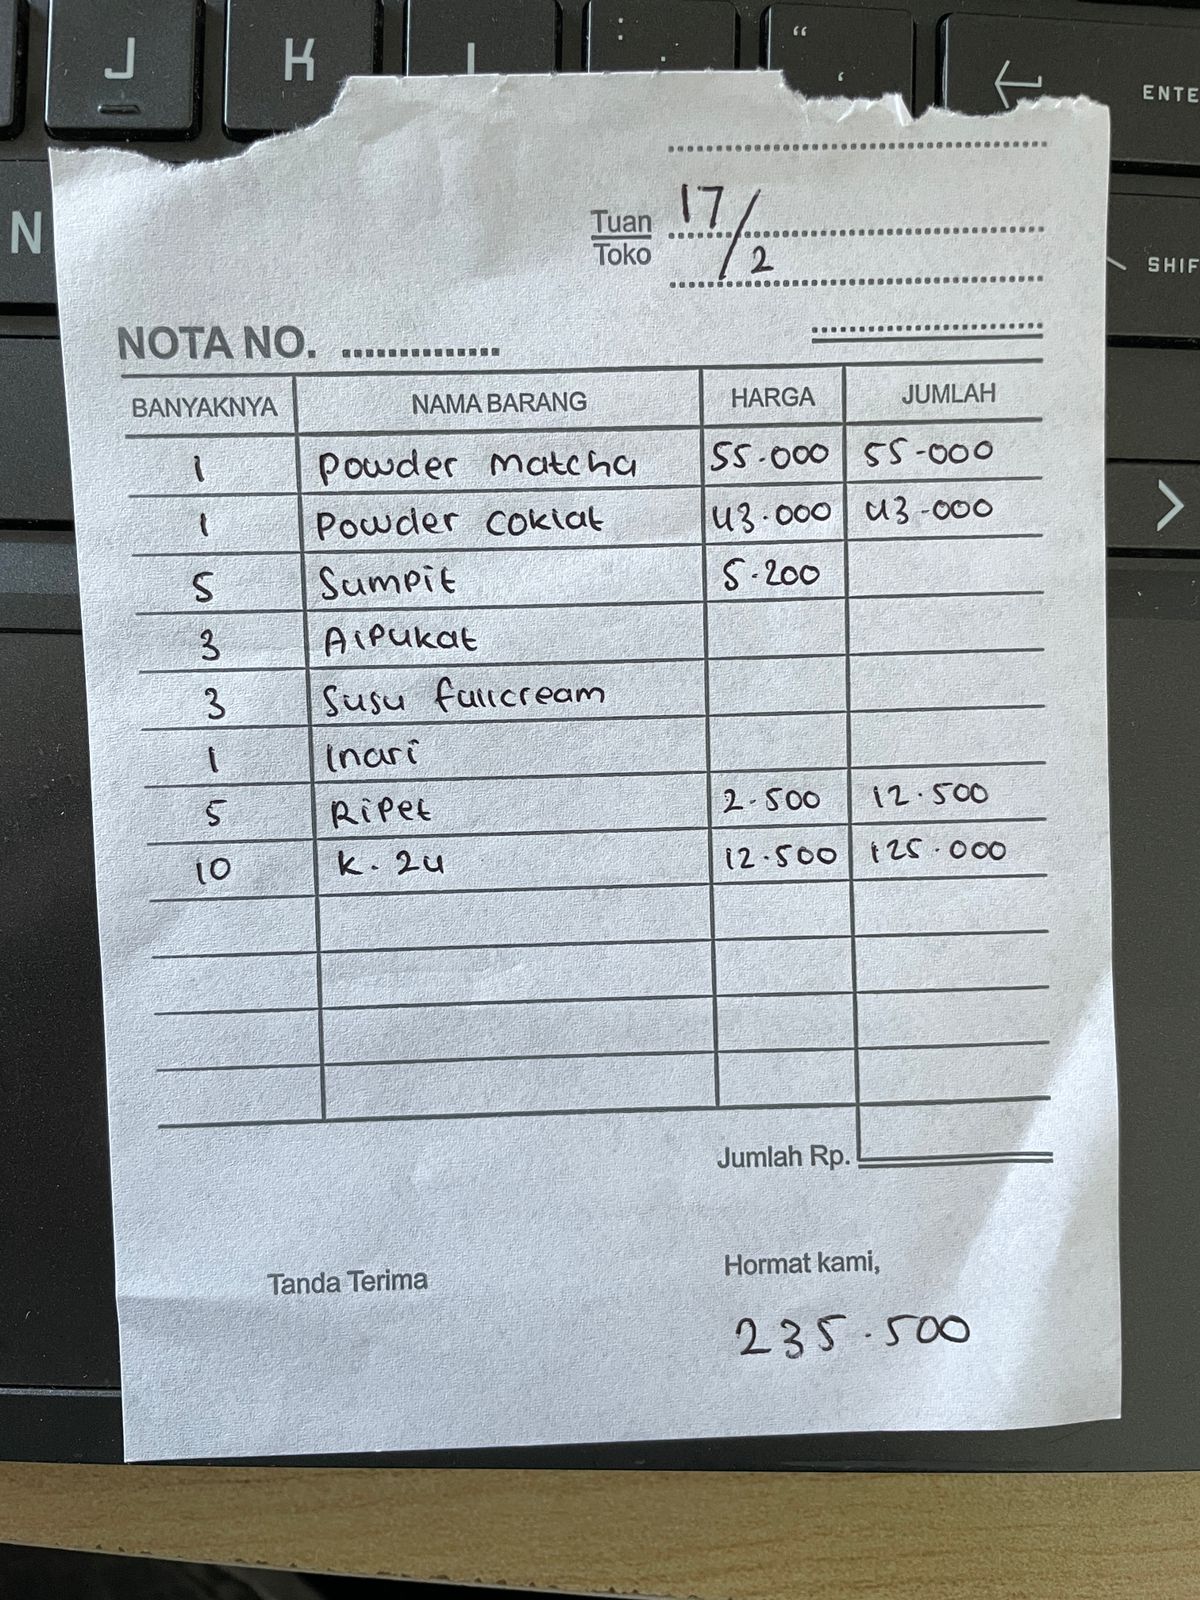 J K L : ; “ ‘ ENTE
N
SHIF
17/2
Tuan
Toko
NOTA NO.
BANYAKNYA NAMA BARANG HARGA JUMLAH
1 Powder matcha 55.000 55-000
1 Powder coklat 43.000 43-000
5 Sumpit 5.200
3 Alpukat
3 Susu fullcream
1 Inari
5 Ripet 2.500 12.500
10 K. 24 12.500 125.000
Jumlah Rp.
Tanda Terima Hormat kami,
235.500